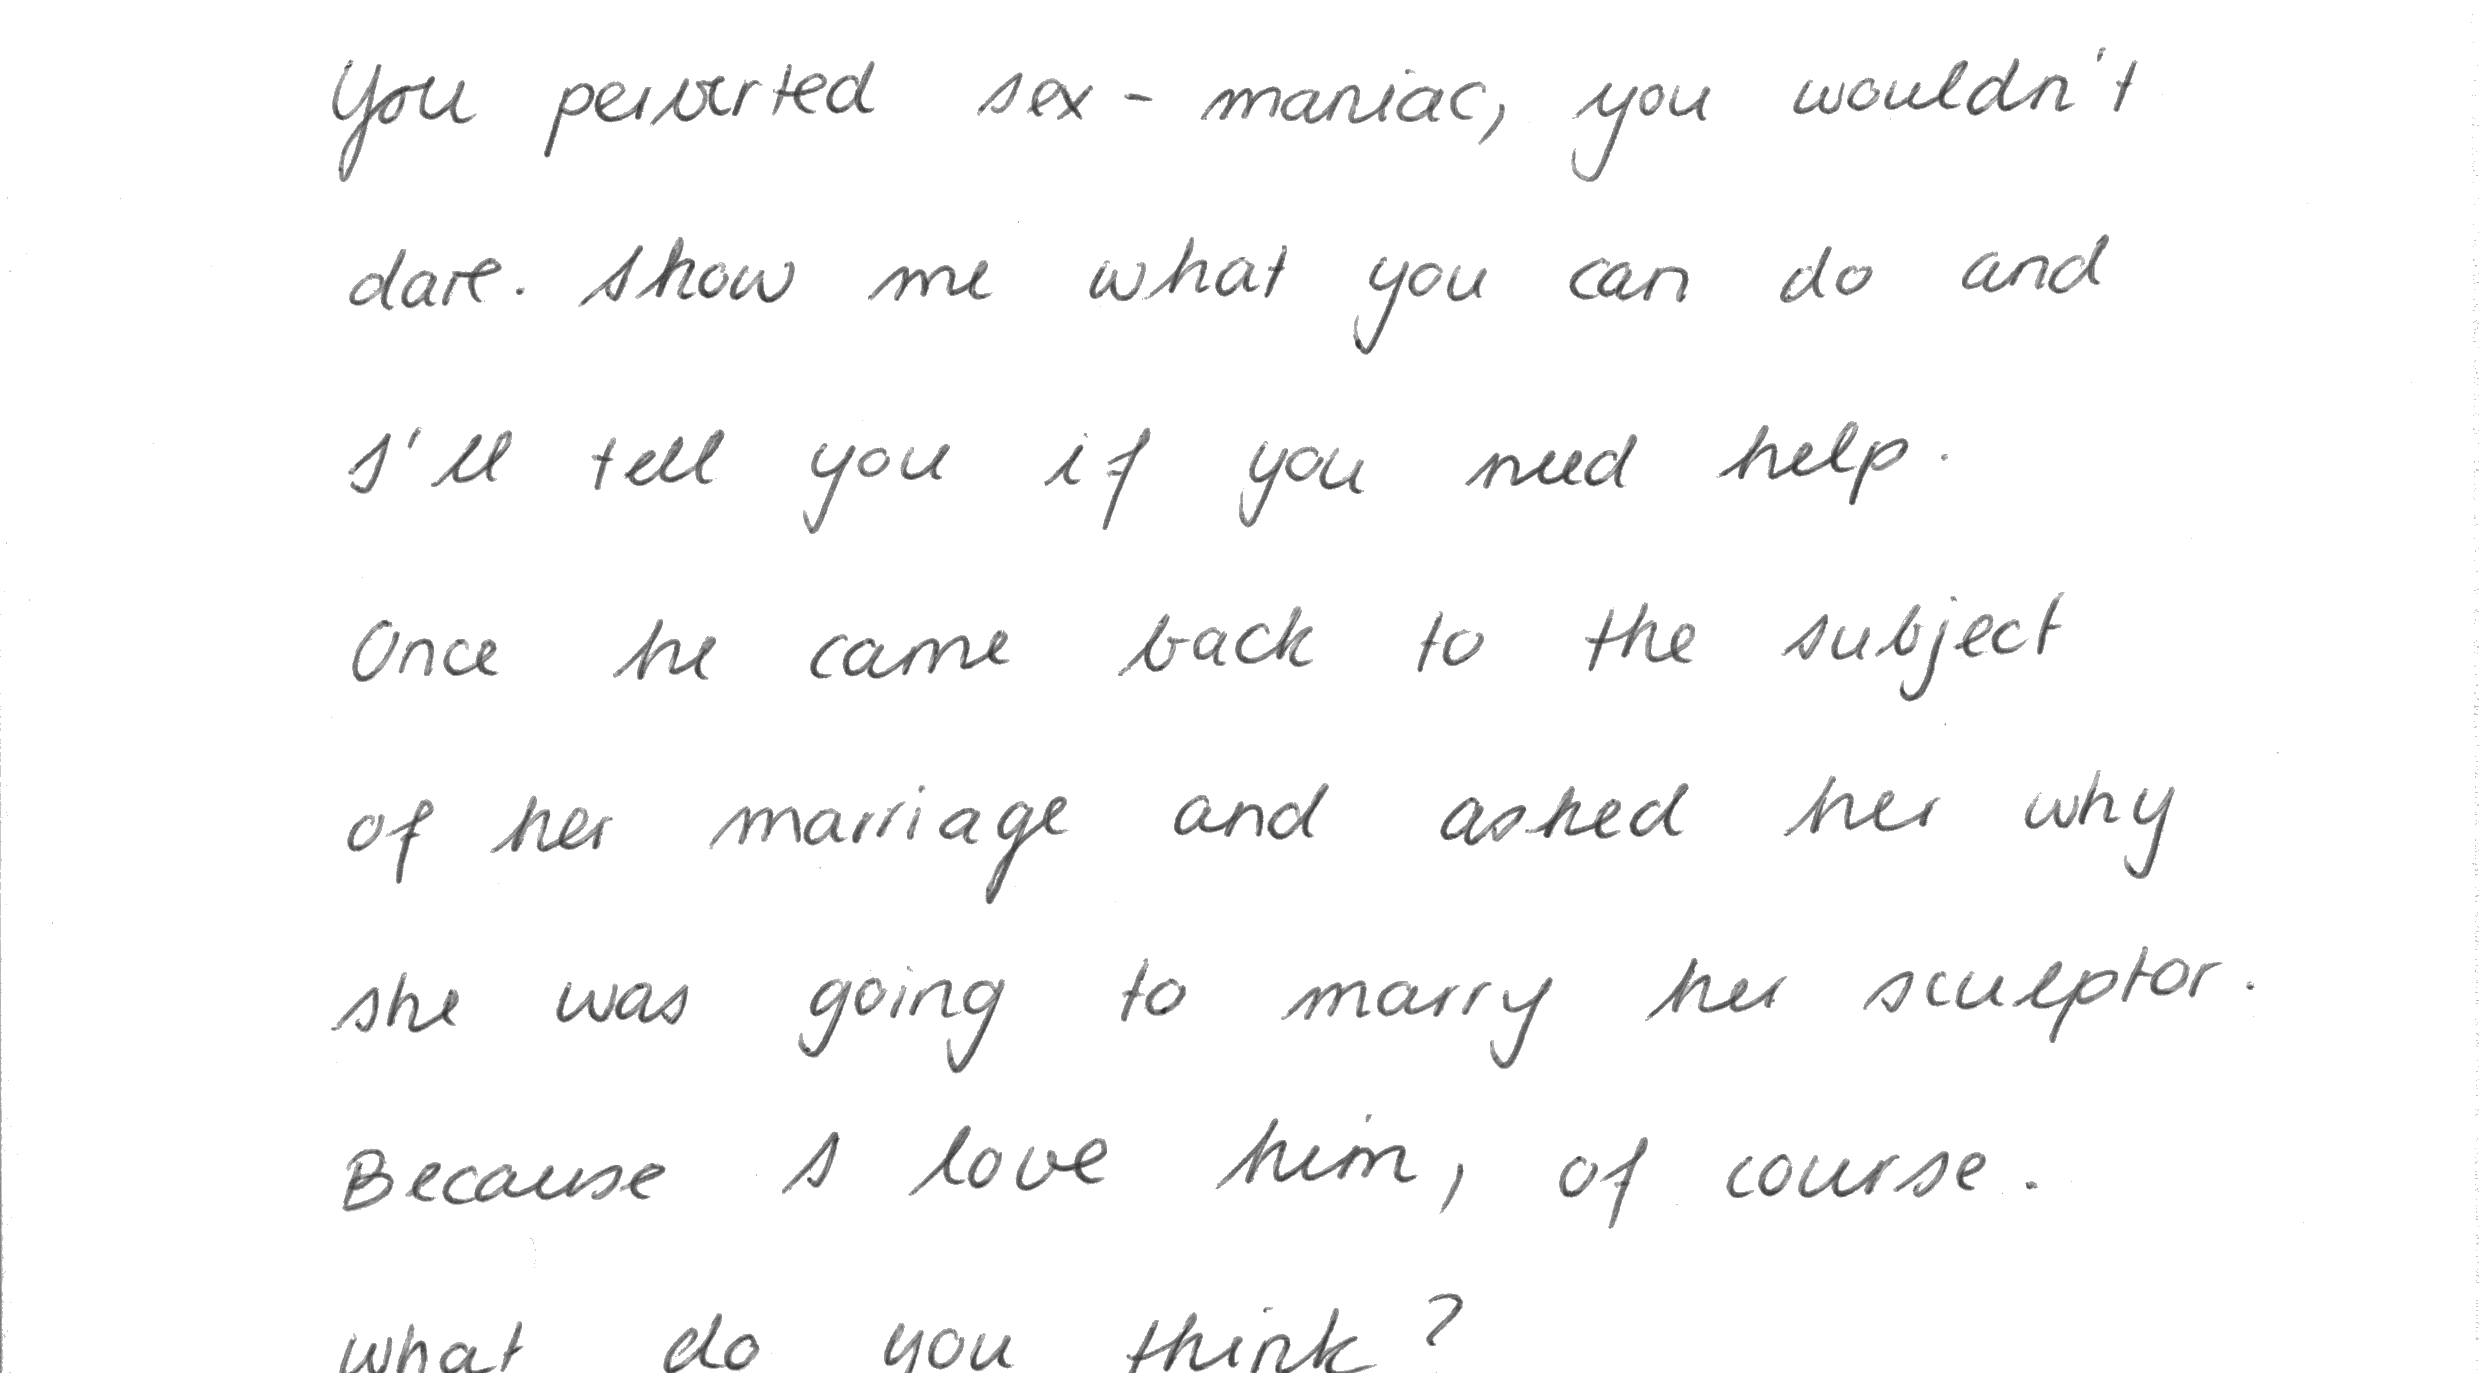 You perverted sex - maniac, you wouldn't
dare. Show me what you can do and
I'll tell you if you need help.
Once he came back to the subject
of her marriage and asked her why
she was going to marry her sculptor.
Because I love him, of course.
what do you think?